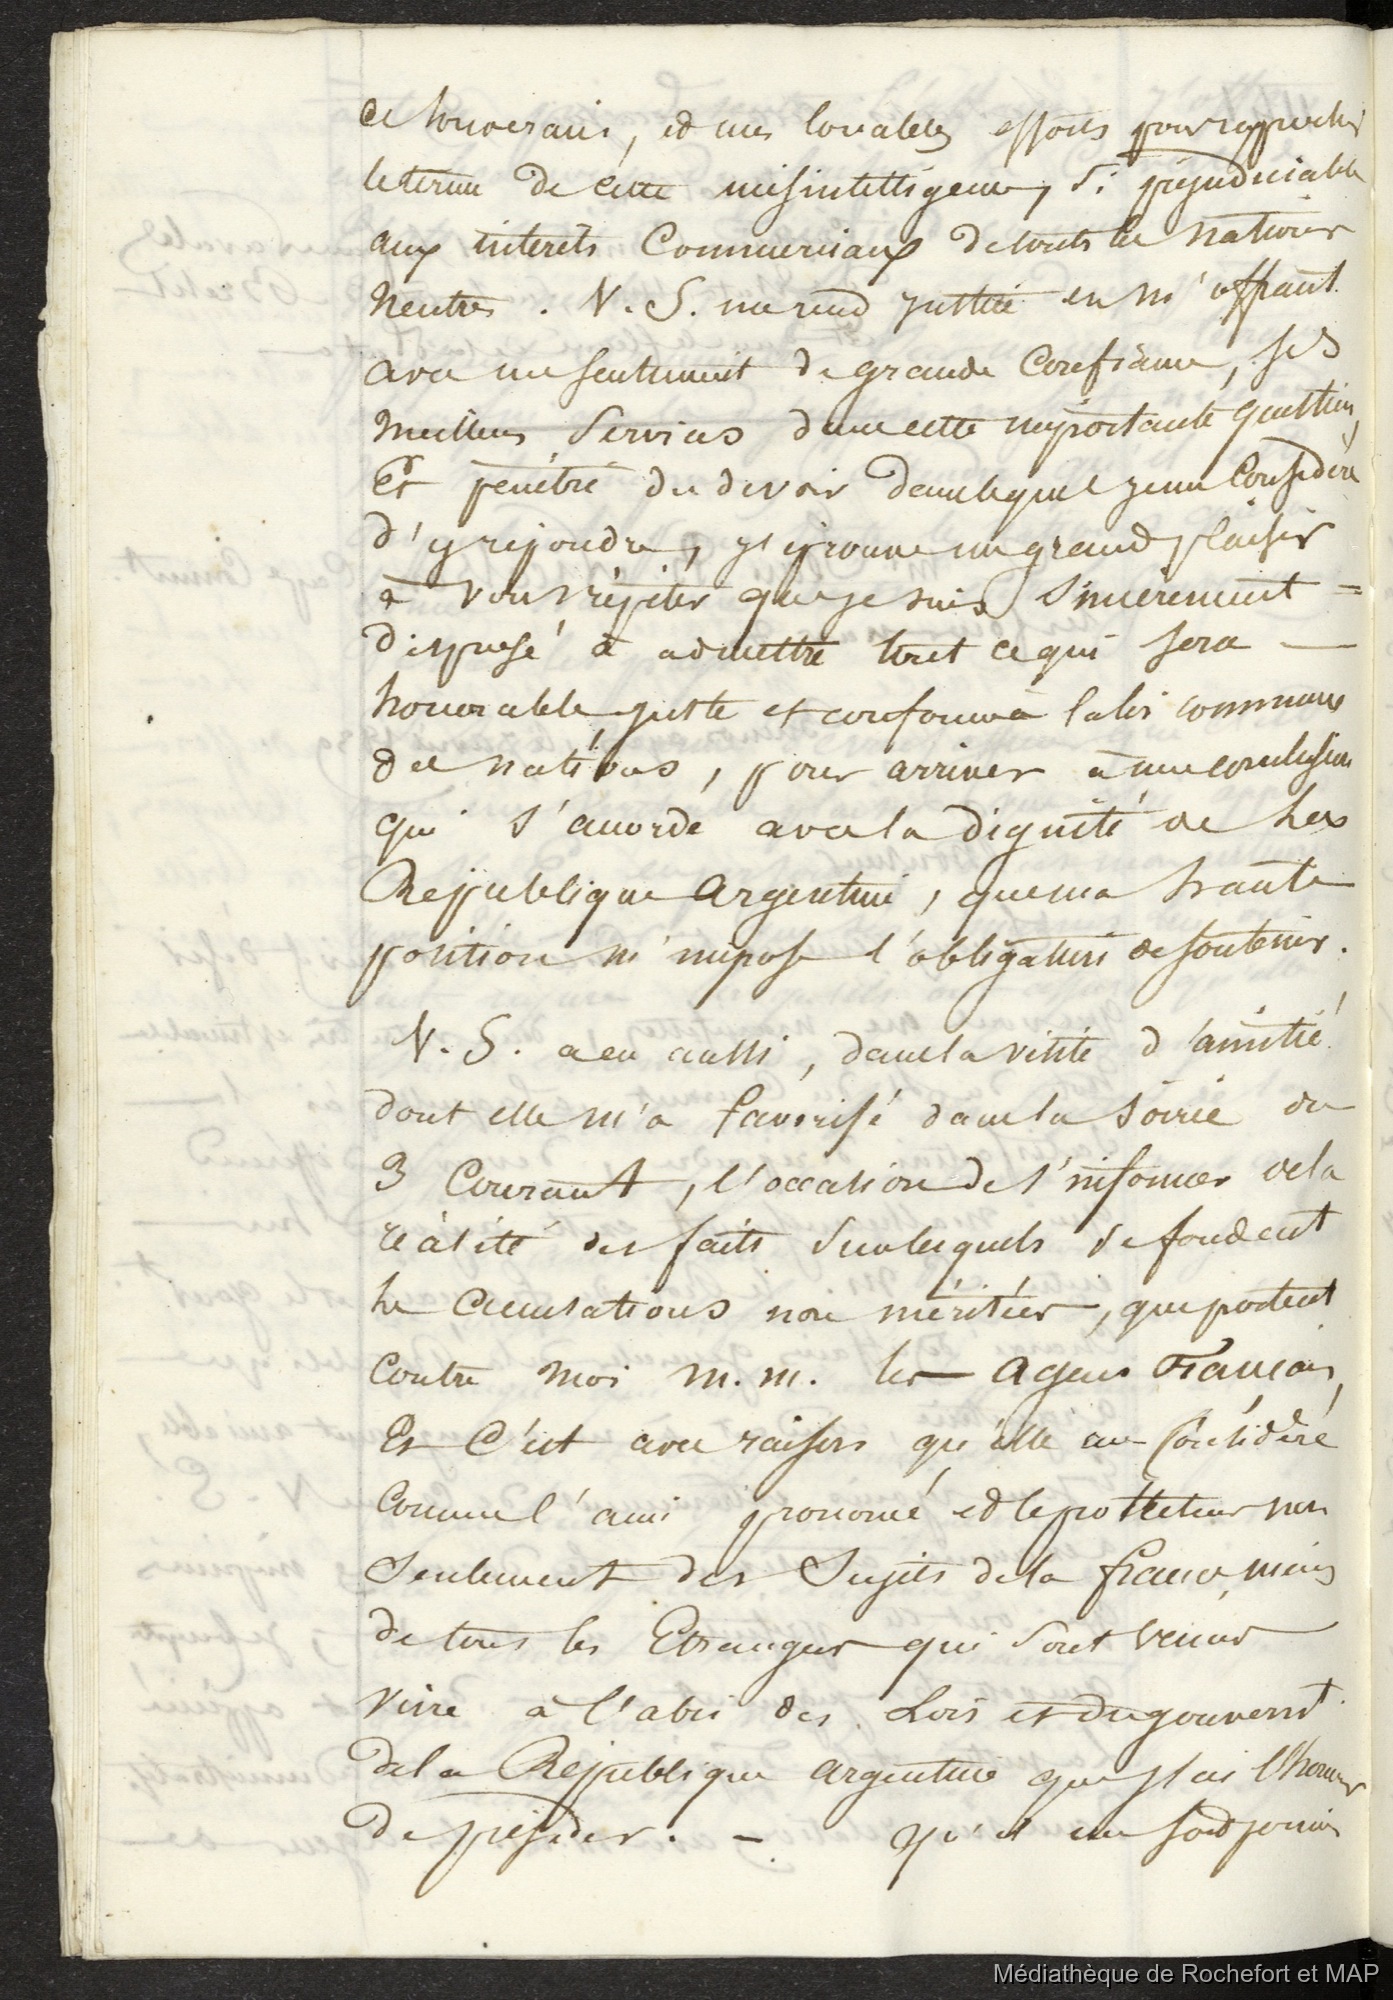 ce souverain, et mes louables efforts pour rapprocher
le terme de cette mésintelligence, si préjudiciable
aux intérêts Commerciaux de touts les nations
Neutres. V. S. me rend justice en m'offrant
avec un sentiment de grande Confiance, ses
Meilleurs Services dans cette importante question,
Et pénétré du devoir dans lequel je me Considère
d'y répondre, j'éprouve un grand plaisir
à vous répéter que je suis Sincèrement =
disposé à admettre tout ce qui sera —
honorable, juste et conforme à la loi commune
des nations, pour arriver à une conclusion
qui s'accorde avec la dignité de la
République Argentine, que ma haute
position m'impose l'obligation de soutenir.
V. S. a eu aussi, dans la visite d'amitié
dont elle m'a favorisé dans la soirée du
3 Courant, l'occasion de s'informer de la
réalité des faits sur lesquels se fondent
les accusations non méritées, que portent
contre moi M. M. les Agens Français,
Et C'est avec raison qu'elle me Considère
Comme l'ami prononcé et le protecteur non
Seulement des Sujets de la france, mais
de tous les Etrangers qui sont venus
vivre à l'abri des Lois et du gouvernt.
de la République argentine que j'ai l'honneur
de présider. — qu'il me soit permis
Médiathèque de Rochefort et MAP